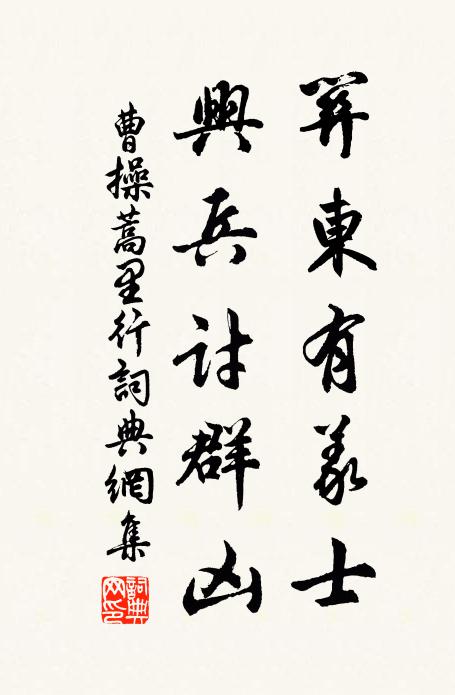 關東有義士
興兵討群凶
曹操蒿里行詞典網集
詞典网印